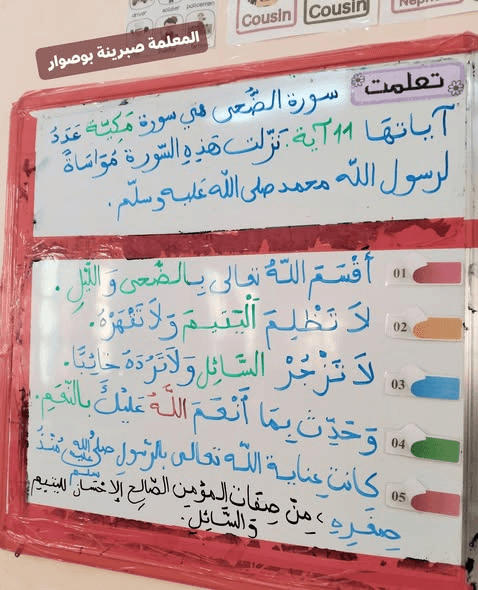 Cousin
Cousin
Neph
driver
policemen
المعلمة صبرينة بوصوار
تعلمت
سورة الضّحى هي سورة مَكِيّة عَدَدُ
آياتهَا 11 آية. نَزَلت هَذِهِ السّورة مُوَاسَاةً
لرسول اللّه محمد صلى اللّه عَليه وسلّم.
01 أَقْسَمَ اللّهُ تعالى بِالضُّحى وَ اللَّيْلِ.
02 لاَ تَظْلِمَ الْيَتِيمَ وَلاَ تَقْهَرْهُ.
03 لاَ تَزْجُرْ السَّائِل وَلاَ تَرُدّهُ خَائِبًا.
04 وَ حَدِّث بِمَا أَنْعَمَ اللَّهُ عَلَيْكَ بِالنِّعَمِ.
05 كانت عِناية اللّه تعالى بالرّسولِ صلى اللّه عليه وسلم مُنْذُ
صِغَرِهِ، مِنْ صِفات المؤمن الصّالح الإحسان لليتيم
وَ السَّائِل.